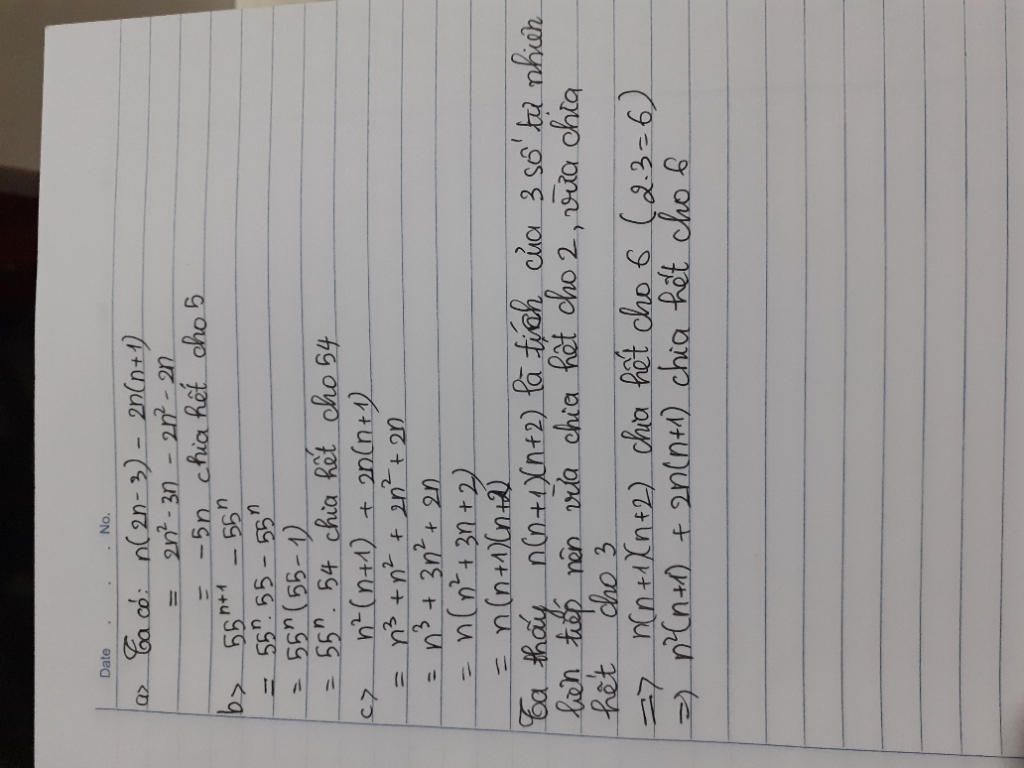 Date . . . No.
a> Ta có: n(2n-3) - 2n(n+1)
= 2n² - 3n - 2n² - 2n
= -5n chia hết cho 5
b> 55ⁿ⁺¹ - 55ⁿ
= 55ⁿ.55 - 55ⁿ
= 55ⁿ(55-1)
= 55ⁿ.54 chia hết cho 54
c> n²(n+1) + 2n(n+1)
= n³ + n² + 2n² + 2n
= n³ + 3n² + 2n
= n(n² + 3n + 2)
= n(n+1)(n+2)
Ta thấy n(n+1)(n+2) là tích của 3 số tự nhiên
liên tiếp nên vừa chia hết cho 2, vừa chia
hết cho 3
=> n(n+1)(n+2) chia hết cho 6 (2.3=6)
=> n²(n+1) + 2n(n+1) chia hết cho 6